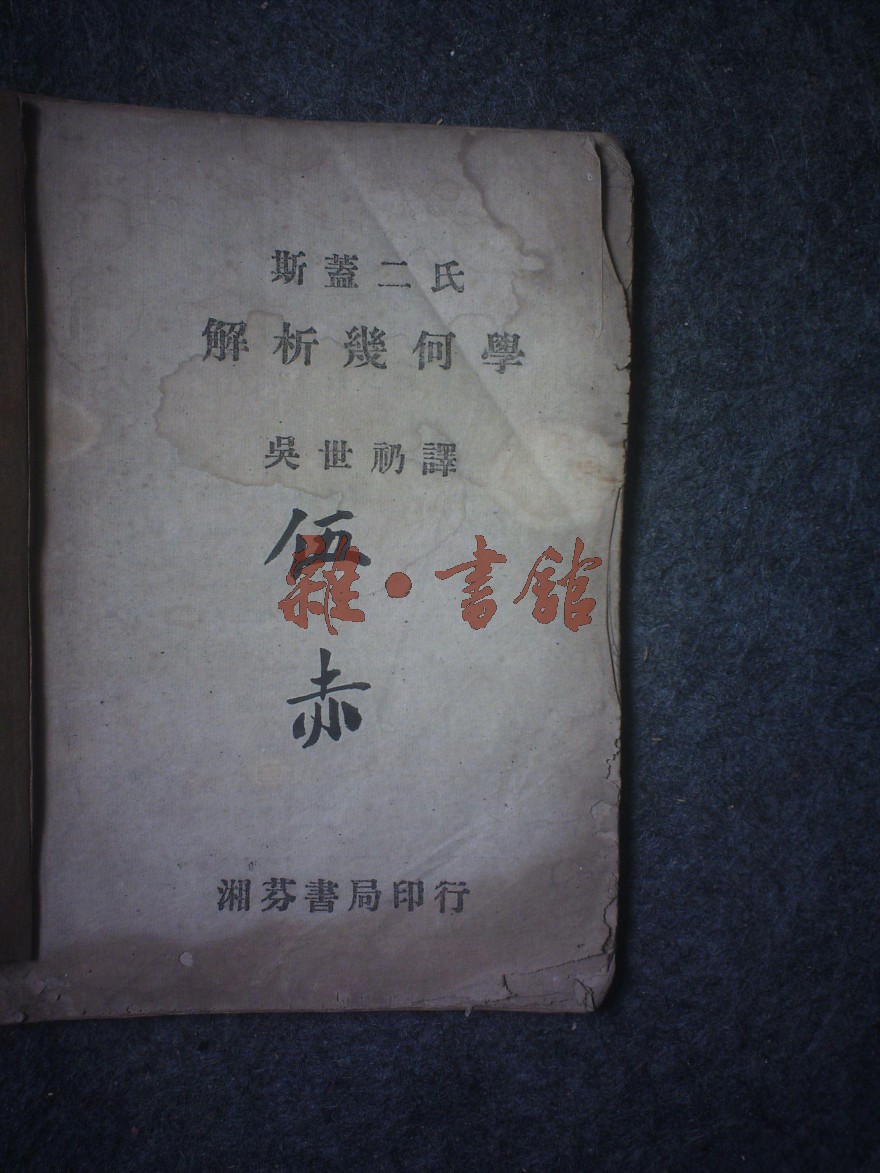 斯蓋二氏
解析幾何學
吳世礽譯
伍
雜·書館
赤
湘芬書局印行